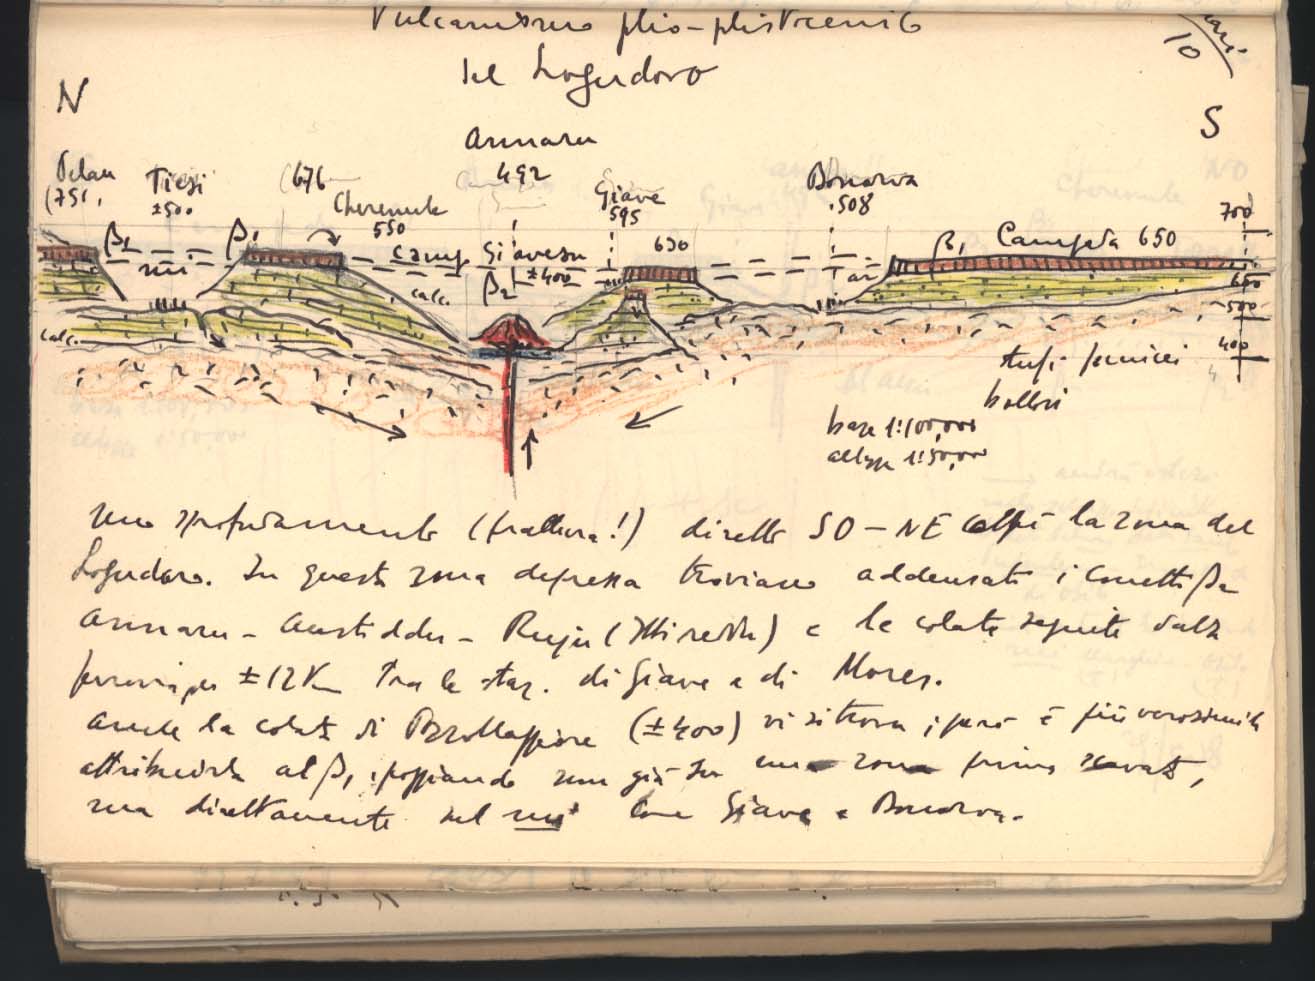 Vulcanismo plio-plistocenico
del Logudoro
10
N
S
Annaru
492
Pelau
(751,
Tiesi
±500
676
Cheremule
550
Giave
595
Bonorva
508
700
β1
β1
mi
Camp Giavesu
±400
calc.
β2
630
ar
β1 Campeda 650
600
500
400
calc.
tufi fenici
base 1:100,000
altezze 1:50,000
uno sprofondamento (frattura!) diretto SO-NE colpì la zona del
Logudoro. In questa zona depressa troviamo addensati i conetti β2
Annaru - Austiddu - Ruju (Ittireddu) e le colate seguite dalla
ferrovia per ±12 Km tra le staz. di Giave e di Mores.
anche la colata di (±400) vi si trova, però è più verosimile
attribuirla al β1, poggiando non già su una zona prima scavata,
ma direttamente sul mi come Giave e Bonorva.